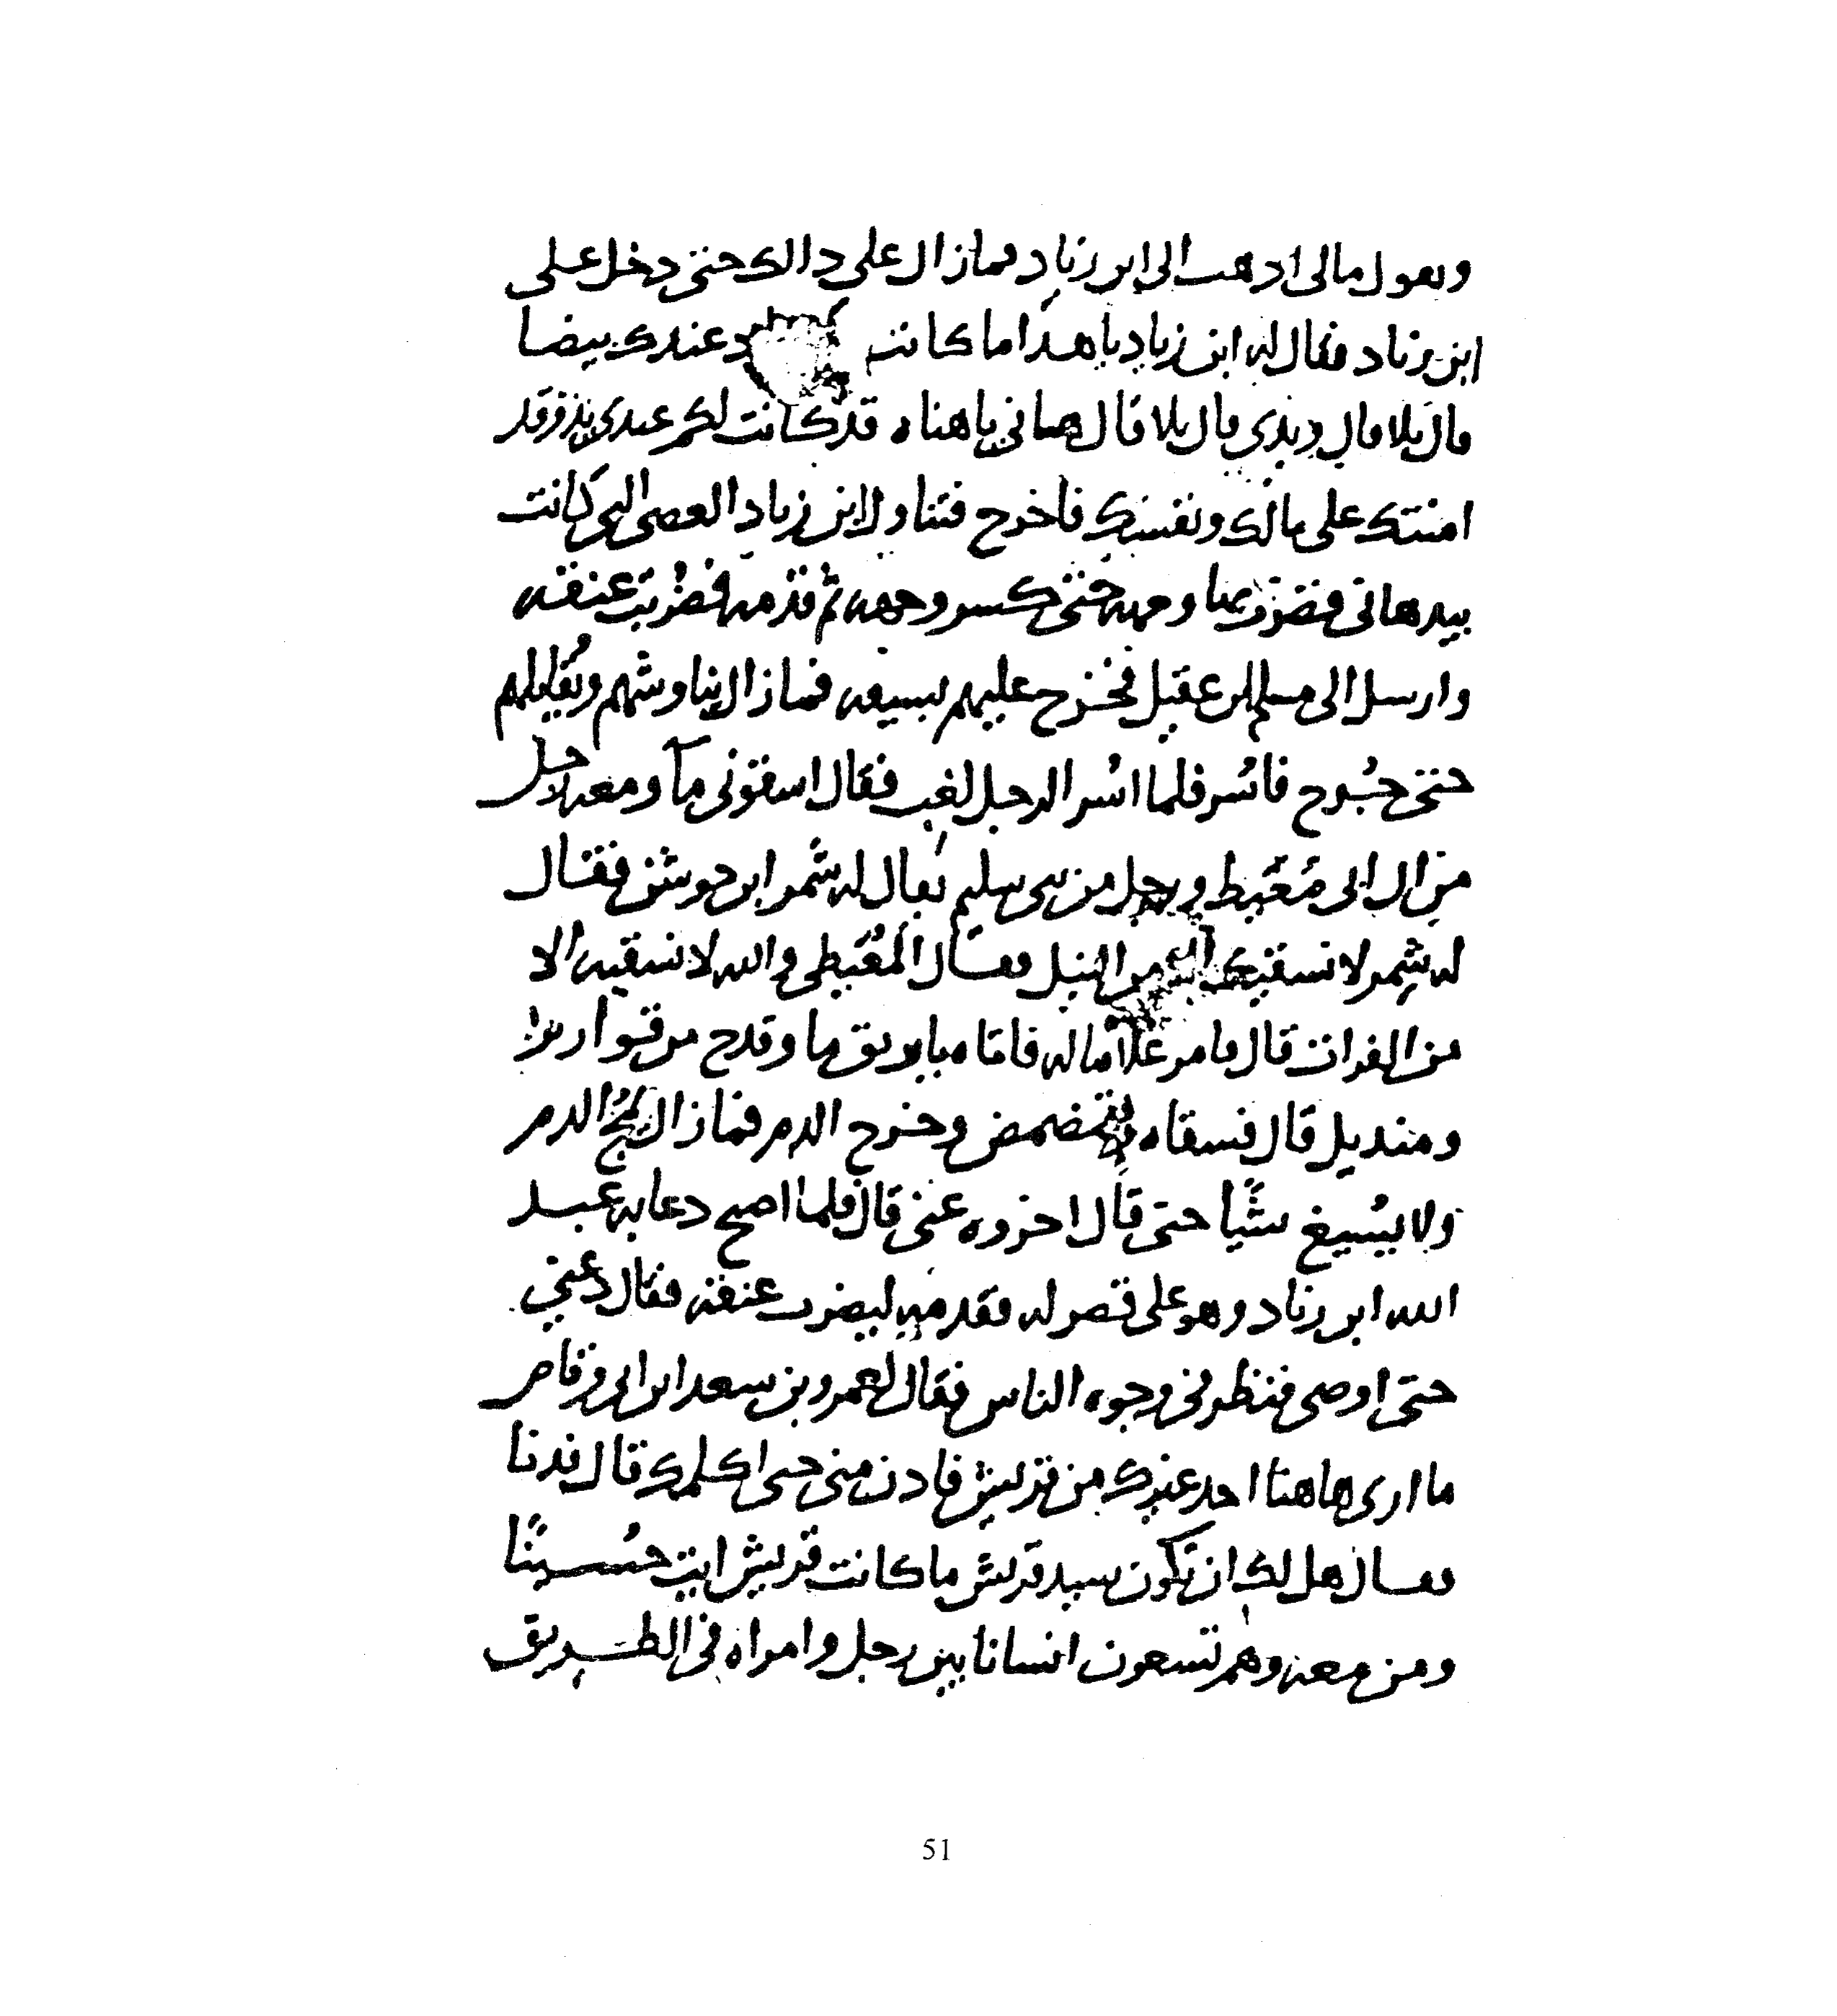 ويقول مالى اذهب الى ابن زياد فمازال على دالك حتى دخل على
ابن زياد فقال له ابن زياد ياهذا ما كانت عندك بيضا
قال بلا قال ويدى قال بلا قال هانى ياهناه قد كانت لكم عندى يد وقد
امنتك على مالك ونفسك فاخرج فتناول ابن زياد العصى التى كانت
بيد هانى فضرب بها وجهه حتى كسر وجهه ثم قدمه فضربت عنقه
وارسل الى مسلم بن عقيل فخرج عليهم بسيفه فمازال يناوشهم ويقاتلهم
حتى جرح فاسر فلما اسر الرجل لغب فقال اسقونى مآ ومعه رجل
من ال ابى معيط ورجل من بنى سليم يقال له شمر ابن حوشن فقال
له شمر لا نسقيك الا من البئر وقال المعيطى والله لا نسقيه الا
من الفرات قال فامر غلاما له فاتاه بابريق ما وقدح من قوارير
ومنديل قال فسقاه فتمضمض وخرج الدم فمازال يمج الدم
ولا يسيغ شيا حتى قال اخروه عنى قال فلما اصبح دعا به عبيد
الله ابن زياد وهو على قصر له فقدمه ليضرب عنقه فقال دعنى
حتى اوصى فنظر فى وجوه الناس فقال لعمرو بن سعد ابن ابى وقاص
ما ارى هاهنا احد عندك من قريش فادن منى حتى اكلمك قال فدنا
فقال هل لك ان تكون سيد قريش ما كانت قريش ايت حسينا
ومن معه وهم تسعون انسانا بين رجل وامراه فى الطريق
51